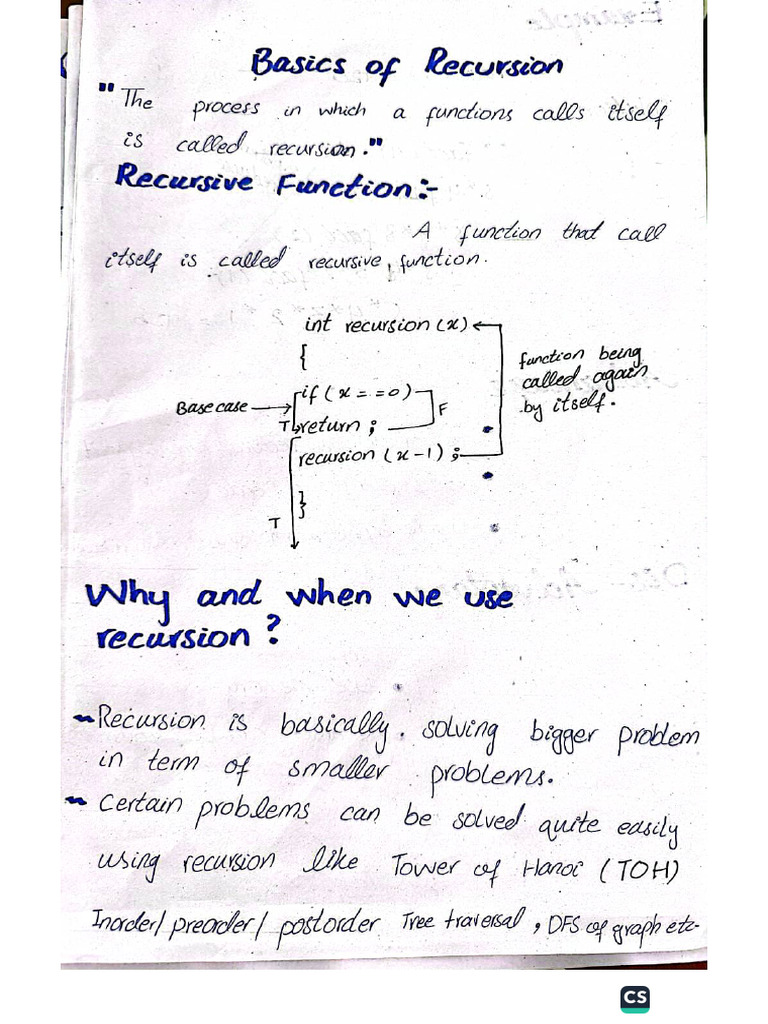 Basics of Recursion
"The process in which a functions calls itself
is called recursion."
Recursive Function:-
A function that call
itself is called recursive function.
int recursion (x)
{
function being
called again
by itself.
if (x==0)
Base case
F
T return ;
recursion (x-1) ;
}
T
Why and when we use
recursion?
~Recursion is basically. solving bigger problem
in term of smaller problems.
~ Certain problems can be solved quite easily
using recursion like Tower of Hanoi (TOH)
Inorder/preorder/postorder Tree traversal, DFS of graph etc-
CS